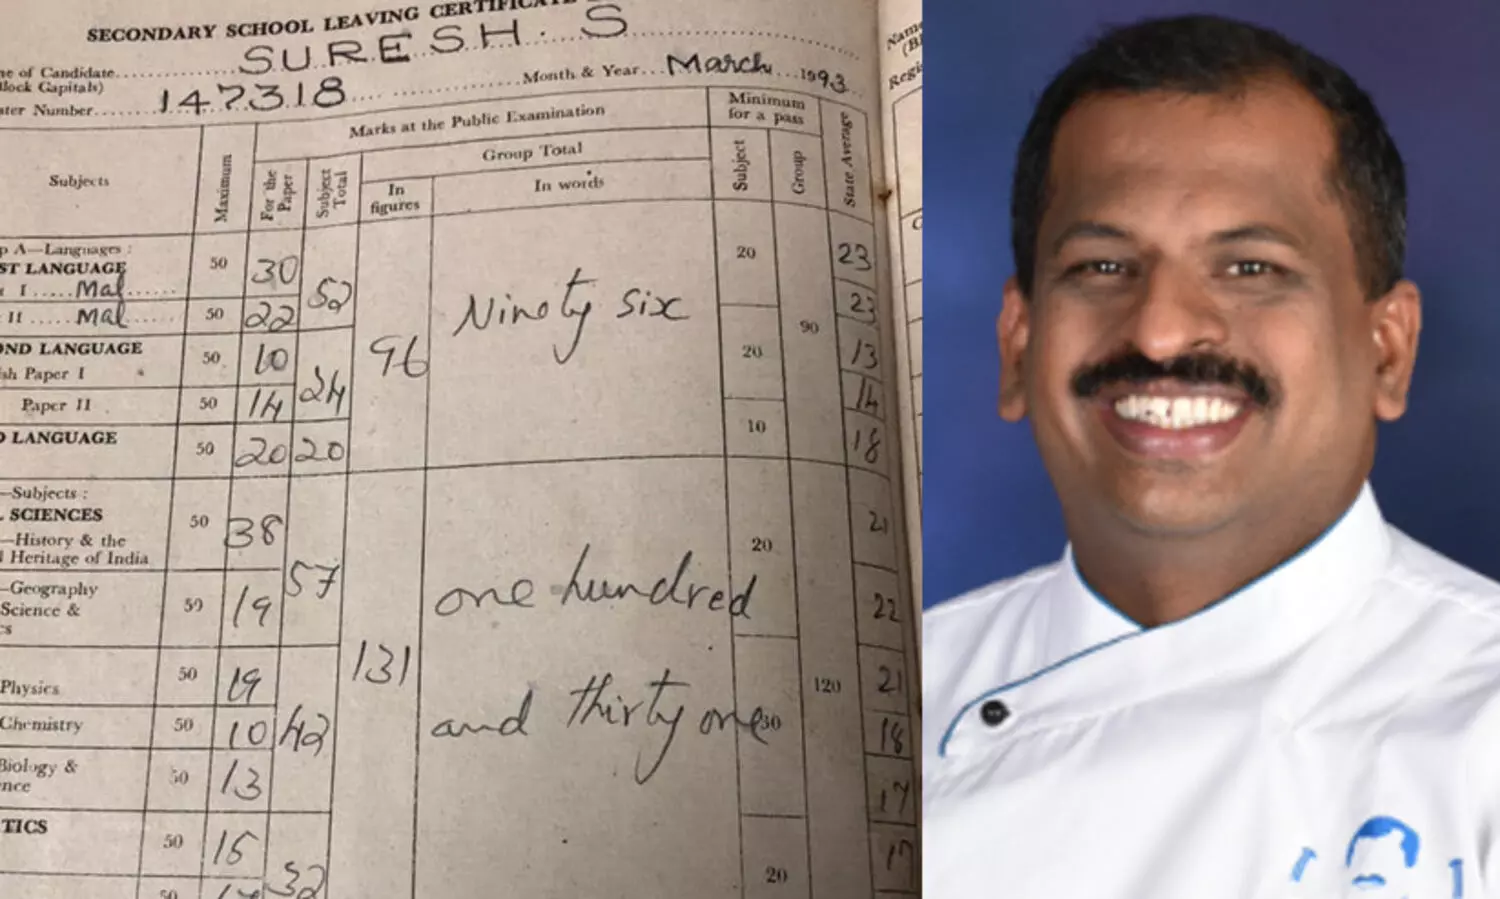 SECONDARY SCHOOL LEAVING CERTIFICATE
ne of Candidate SURESH. S
lock Capitals)
ster Number 147318 Month & Year March 1993
Subjects
Maximum
Marks at the Public Examination
For the Paper
Subject Total
Group Total
In figures
In words
Minimum for a pass
Subject
Group
State Average
p A—Languages :
ST LANGUAGE
I Mal 50 30 52 20 23
II Mal 50 22 23
96 Ninety six 90
OND LANGUAGE
sh Paper I 50 10 24 20 13
Paper II 50 14 14
D LANGUAGE 50 20 20 10 18
—Subjects :
L SCIENCES
—History & the
l Heritage of India 50 38 57 20 21
—Geography
Science &
cs 50 19 22
131 one hundred
and thirty one 120
Physics 50 19 42 30 21
Chemistry 50 10 18
Biology &
nce 50 13 17
TICS 50 15 32 20 17
50
Name
(Bl
Regi